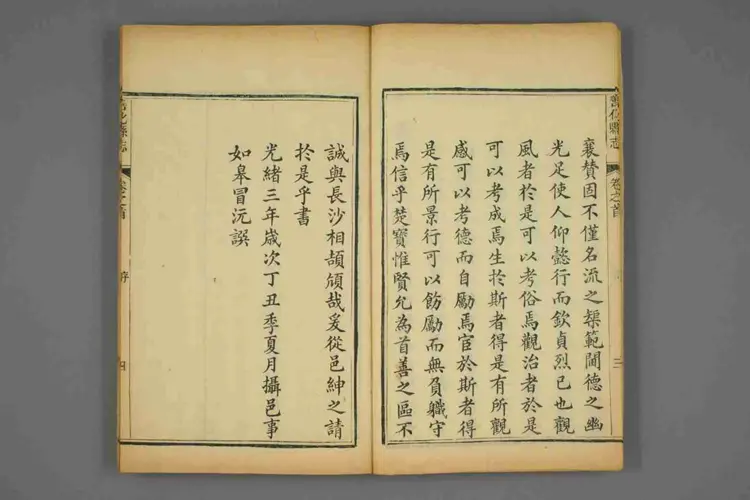 襄贊固不僅名流之榘範閫德之幽
光足使人仰懿行而欽貞烈已也觀
風者於是可以考俗焉觀治者於是
可以考成焉生於斯者得是有所觀
感可以考德而自勵焉宦於斯者得
是有所景行可以飭勵而無負職守
焉信乎楚寶惟賢允為首善之區不
善化縣志
卷之首
序
三
誠與長沙相頡頏哉爰從邑紳之請
於是乎書
光緒三年歲次丁丑季夏月攝邑事
如皋冒沅譔
善化縣志
卷之首
序
四